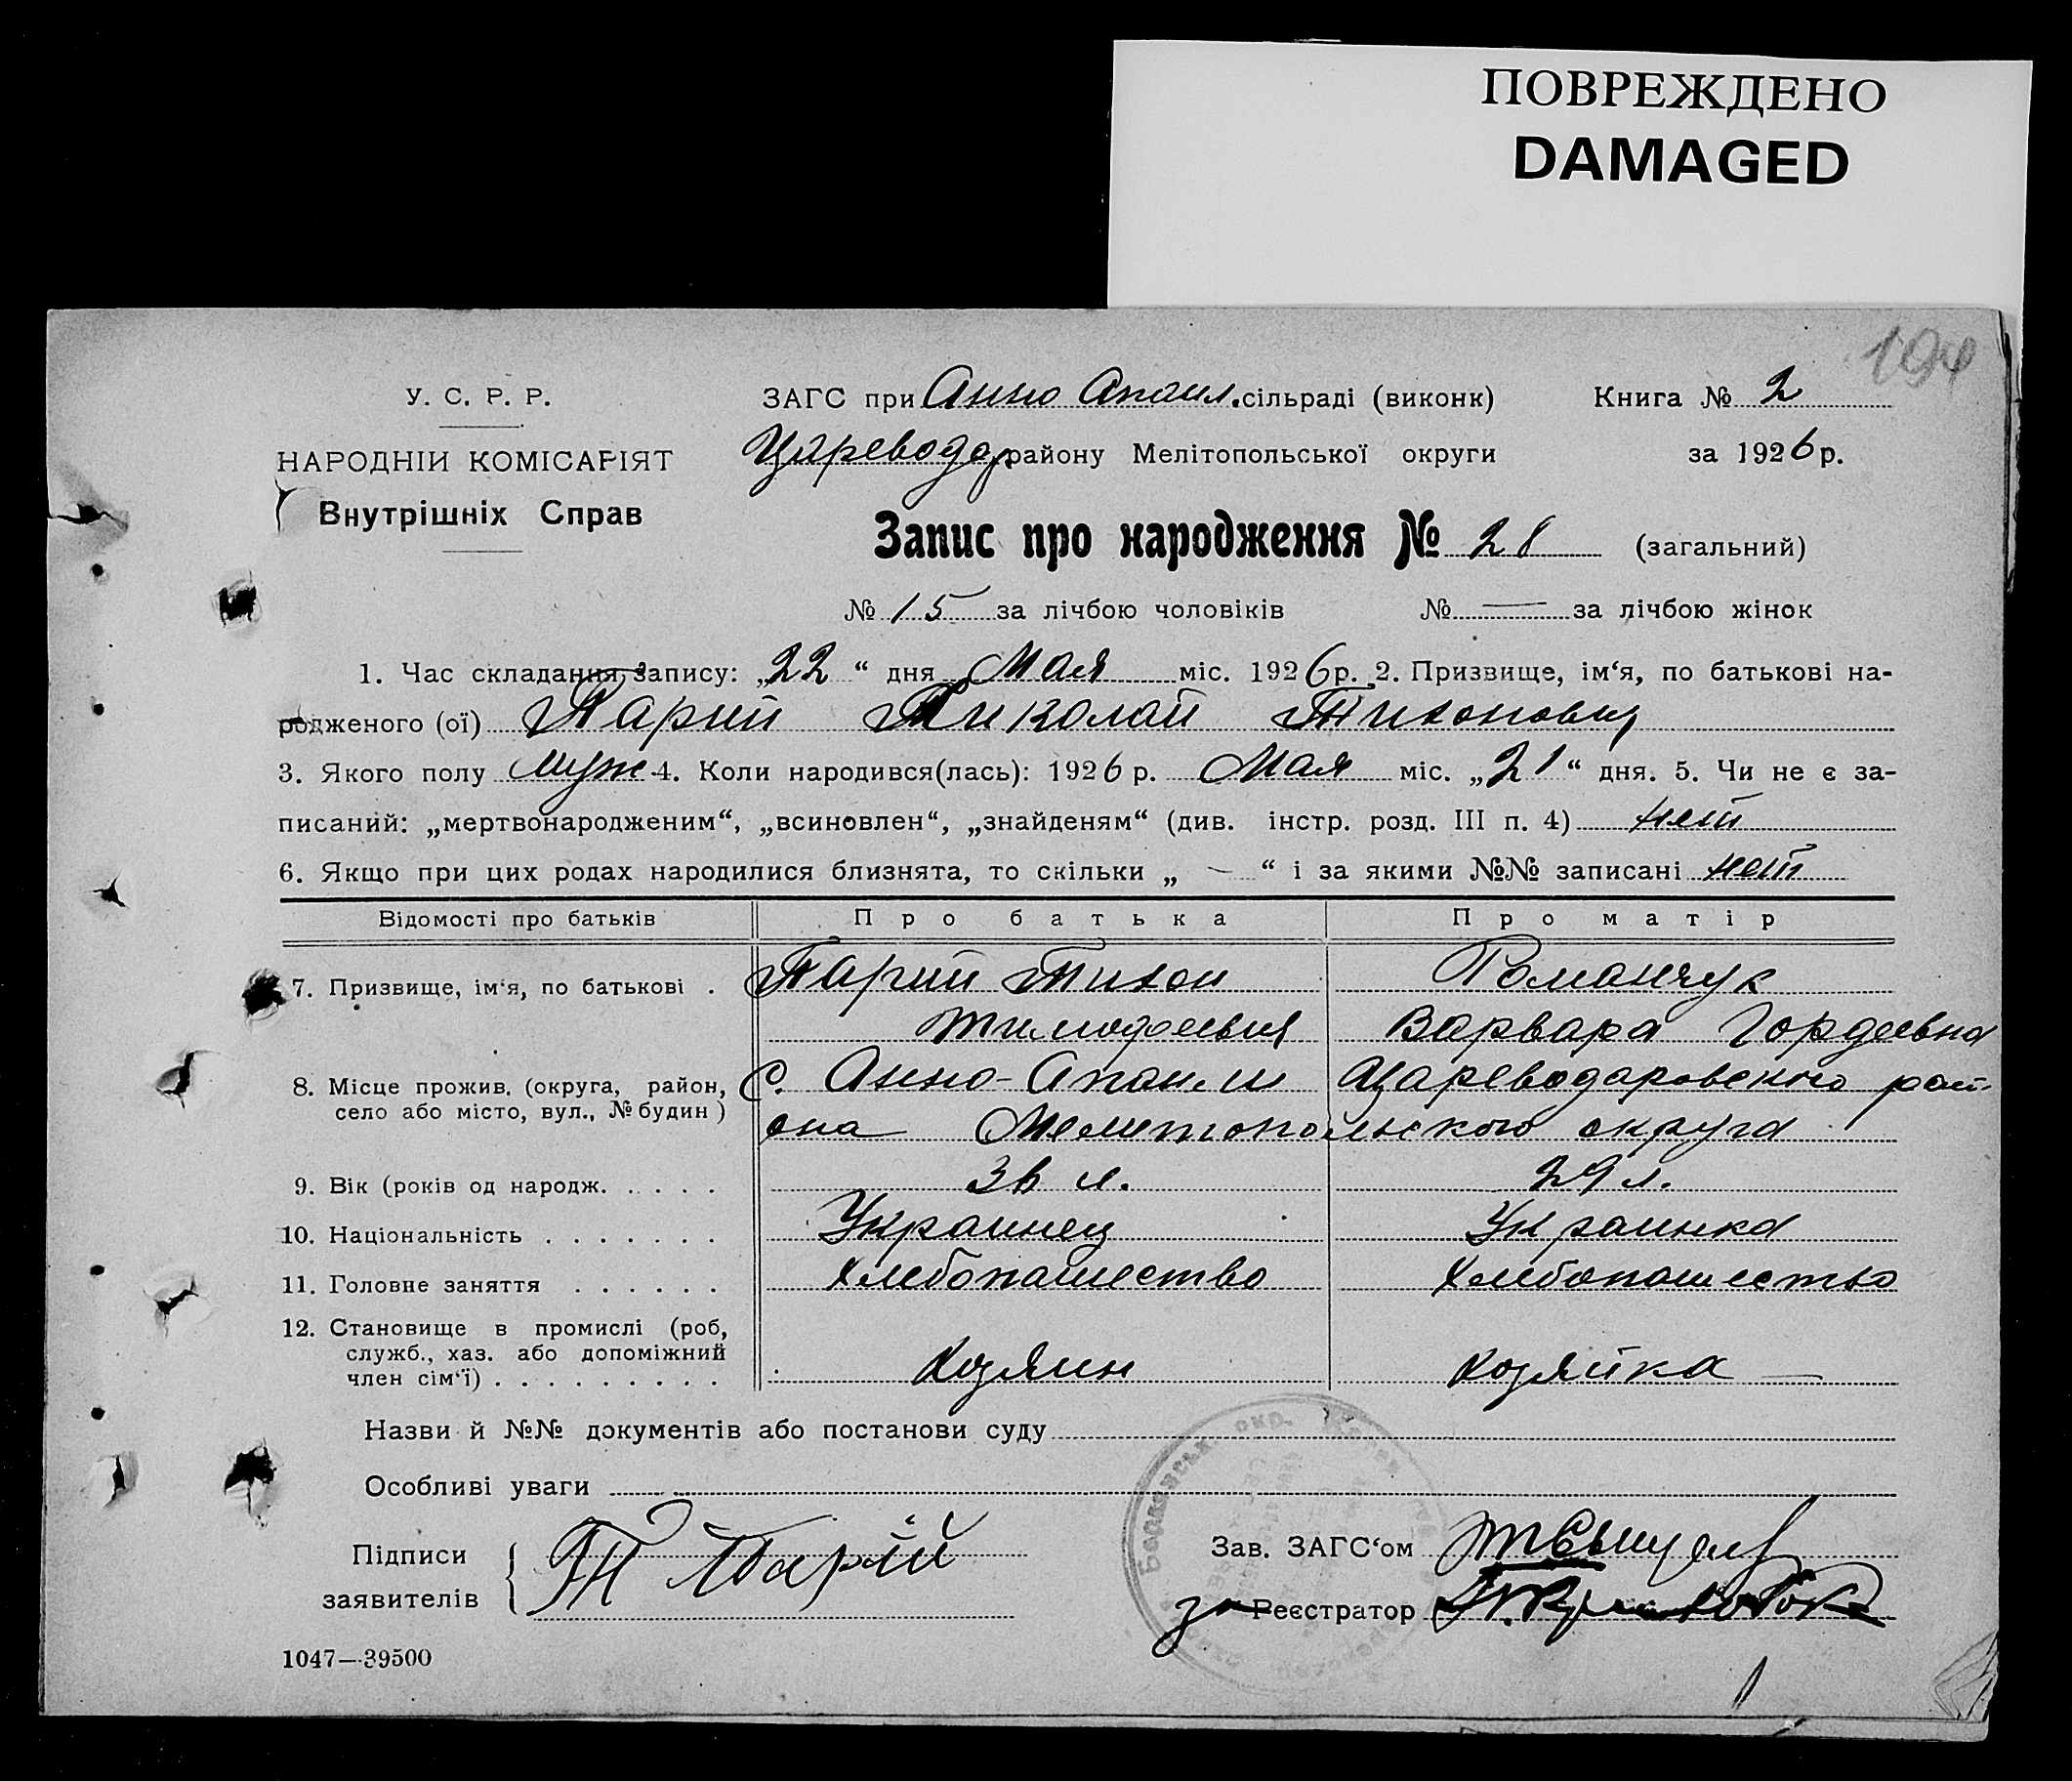 ПОВРЕЖДЕНО
DAMAGED
194
У. С. Р. Р.
НАРОДНІЙ КОМІСАРІЯТ
Внутрішніх Справ
ЗАГС при Анно Апаил. сільраді (виконк)
Книга № 2
Цареводар району Мелітопольської округи
за 1926 р.
Запис про народження № 28 (загальний)
№ 15 за лічбою чоловіків № — за лічбою жінок
1. Час складання запису: „22“ дня Мая міс. 1926 р. 2. Призвище, ім‘я, по батькові на-
родженого (ої) Парий Николай Тихонович
3. Якого полу муж 4. Коли народився(лась): 1926 р. Мая міс. „21“ дня. 5. Чи не є за-
писаний: „мертвонародженим“, „всиновлен“, „знайденям“ (див. інстр. розд. III п. 4) нет
6. Якщо при цих родах народилися близнята, то скільки „ — “ і за якими №№ записані нет
Відомості про батьків Про батька Про матір
7. Призвище, ім‘я, по батькові . Парий Тихон Романчук
Тимофеевич Варвара Гордеевна
8. Місце прожив. (округа, район, С. Анно-Апаили Цареводаровского рай-
село або місто, вул., № будин ) она Мелитопольского округа
9. Вік (років од народж. . . . . 36 л. 29 л.
10. Національність . . . . . . . Украинец Украинка
11. Головне заняття . . . . . . Хлебопашество Хлебопашество
12. Становище в промислі (роб,
служб., хаз. або допоміжний
член сім‘ї) . . . . . . . . . Хозяин Хозяйка —
Назви й №№ документів або постанови суду
Особливі уваги
Підписи
заявителів
Т Парій
Зав. ЗАГС‘ом
за Реєстратор
1047—39500